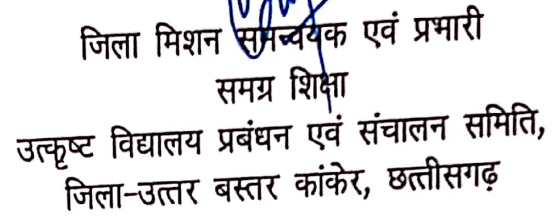 जिला मिशन समन्वयक एवं प्रभारी
समग्र शिक्षा
उत्कृष्ट विद्यालय प्रबंधन एवं संचालन समिति,
जिला-उत्तर बस्तर कांकेर, छत्तीसगढ़